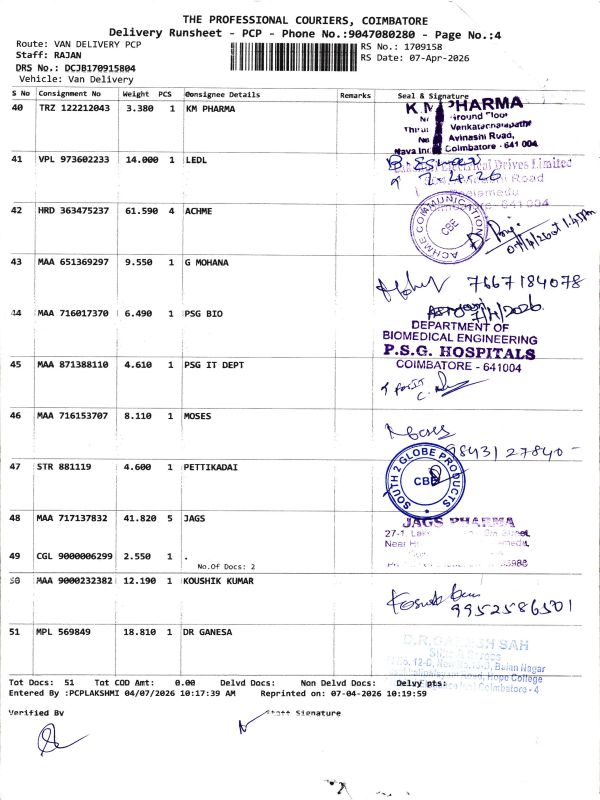 THE PROFESSIONAL COURIERS, COIMBATORE
Delivery Runsheet - PCP - Phone No.:9047080280 - Page No.:4
Route: VAN DELIVERY PCP
RS No.: 1709158
Staff: RAJAN
RS Date: 07-Apr-2026
DRS No.: DCJB170915804
Vehicle: Van Delivery
S No Consignment No Weight PCS Consignee Details Remarks Seal & Signature
40 TRZ 122212043 3.380 1 KM PHARMA
K M PHARMA
Ground Floor
Venkatachalapathi
Avinashi Road,
Coimbatore - 641 004
41 VPL 973602233 14.000 1 LEDL
Electrical Drives Limited
Road
7.4.26
42 HRD 363475237 61.590 4 ACHME
ACHME COMMUNICATION
CBE
07/4/2026 1.45pm
43 MAA 651369297 9.550 1 G MOHANA
7667184078
44 MAA 716017370 6.490 1 PSG BIO
7/4/2026
DEPARTMENT OF
BIOMEDICAL ENGINEERING
P.S.G. HOSPITALS
COIMBATORE - 641004
45 MAA 871388110 4.610 1 PSG IT DEPT
46 MAA 716153707 8.110 1 MOSES
Moses
9843127840
47 STR 881119 4.600 1 PETTIKADAI
SOUTH 2 GLOBE PRODUCTS
CBE
48 MAA 717137832 41.820 5 JAGS
JAGS PHARMA
49 CGL 9000006299 2.550 1 .
No.Of Docs: 2
50 MAA 9000232382 12.190 1 KOUSHIK KUMAR
9952586501
51 MPL 569849 18.810 1 DR GANESA
D.R.GANESH SAH
Balan Nagar
Hope College
Coimbatore - 4
Tot Docs: 51 Tot COD Amt: 0.00 Delvd Docs: Non Delvd Docs: Delvy pts:
Entered By :PCPLAKSHMI 04/07/2026 10:17:39 AM Reprinted on: 07-04-2026 10:19:59
Verified By
Staff Signature